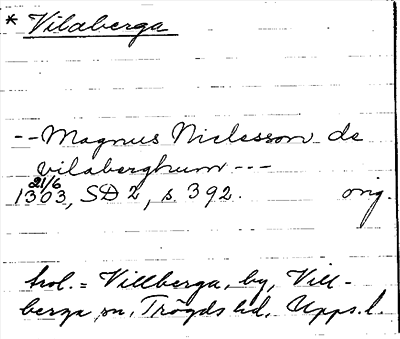 * Vilaberga
-- Magnus Nielsson de
vilaberghum ---
21/6
1303, SD 2, s. 392. orig.
trol. = Villberga, by, Vill-
berga sn, Trögds hd, Upps. l.